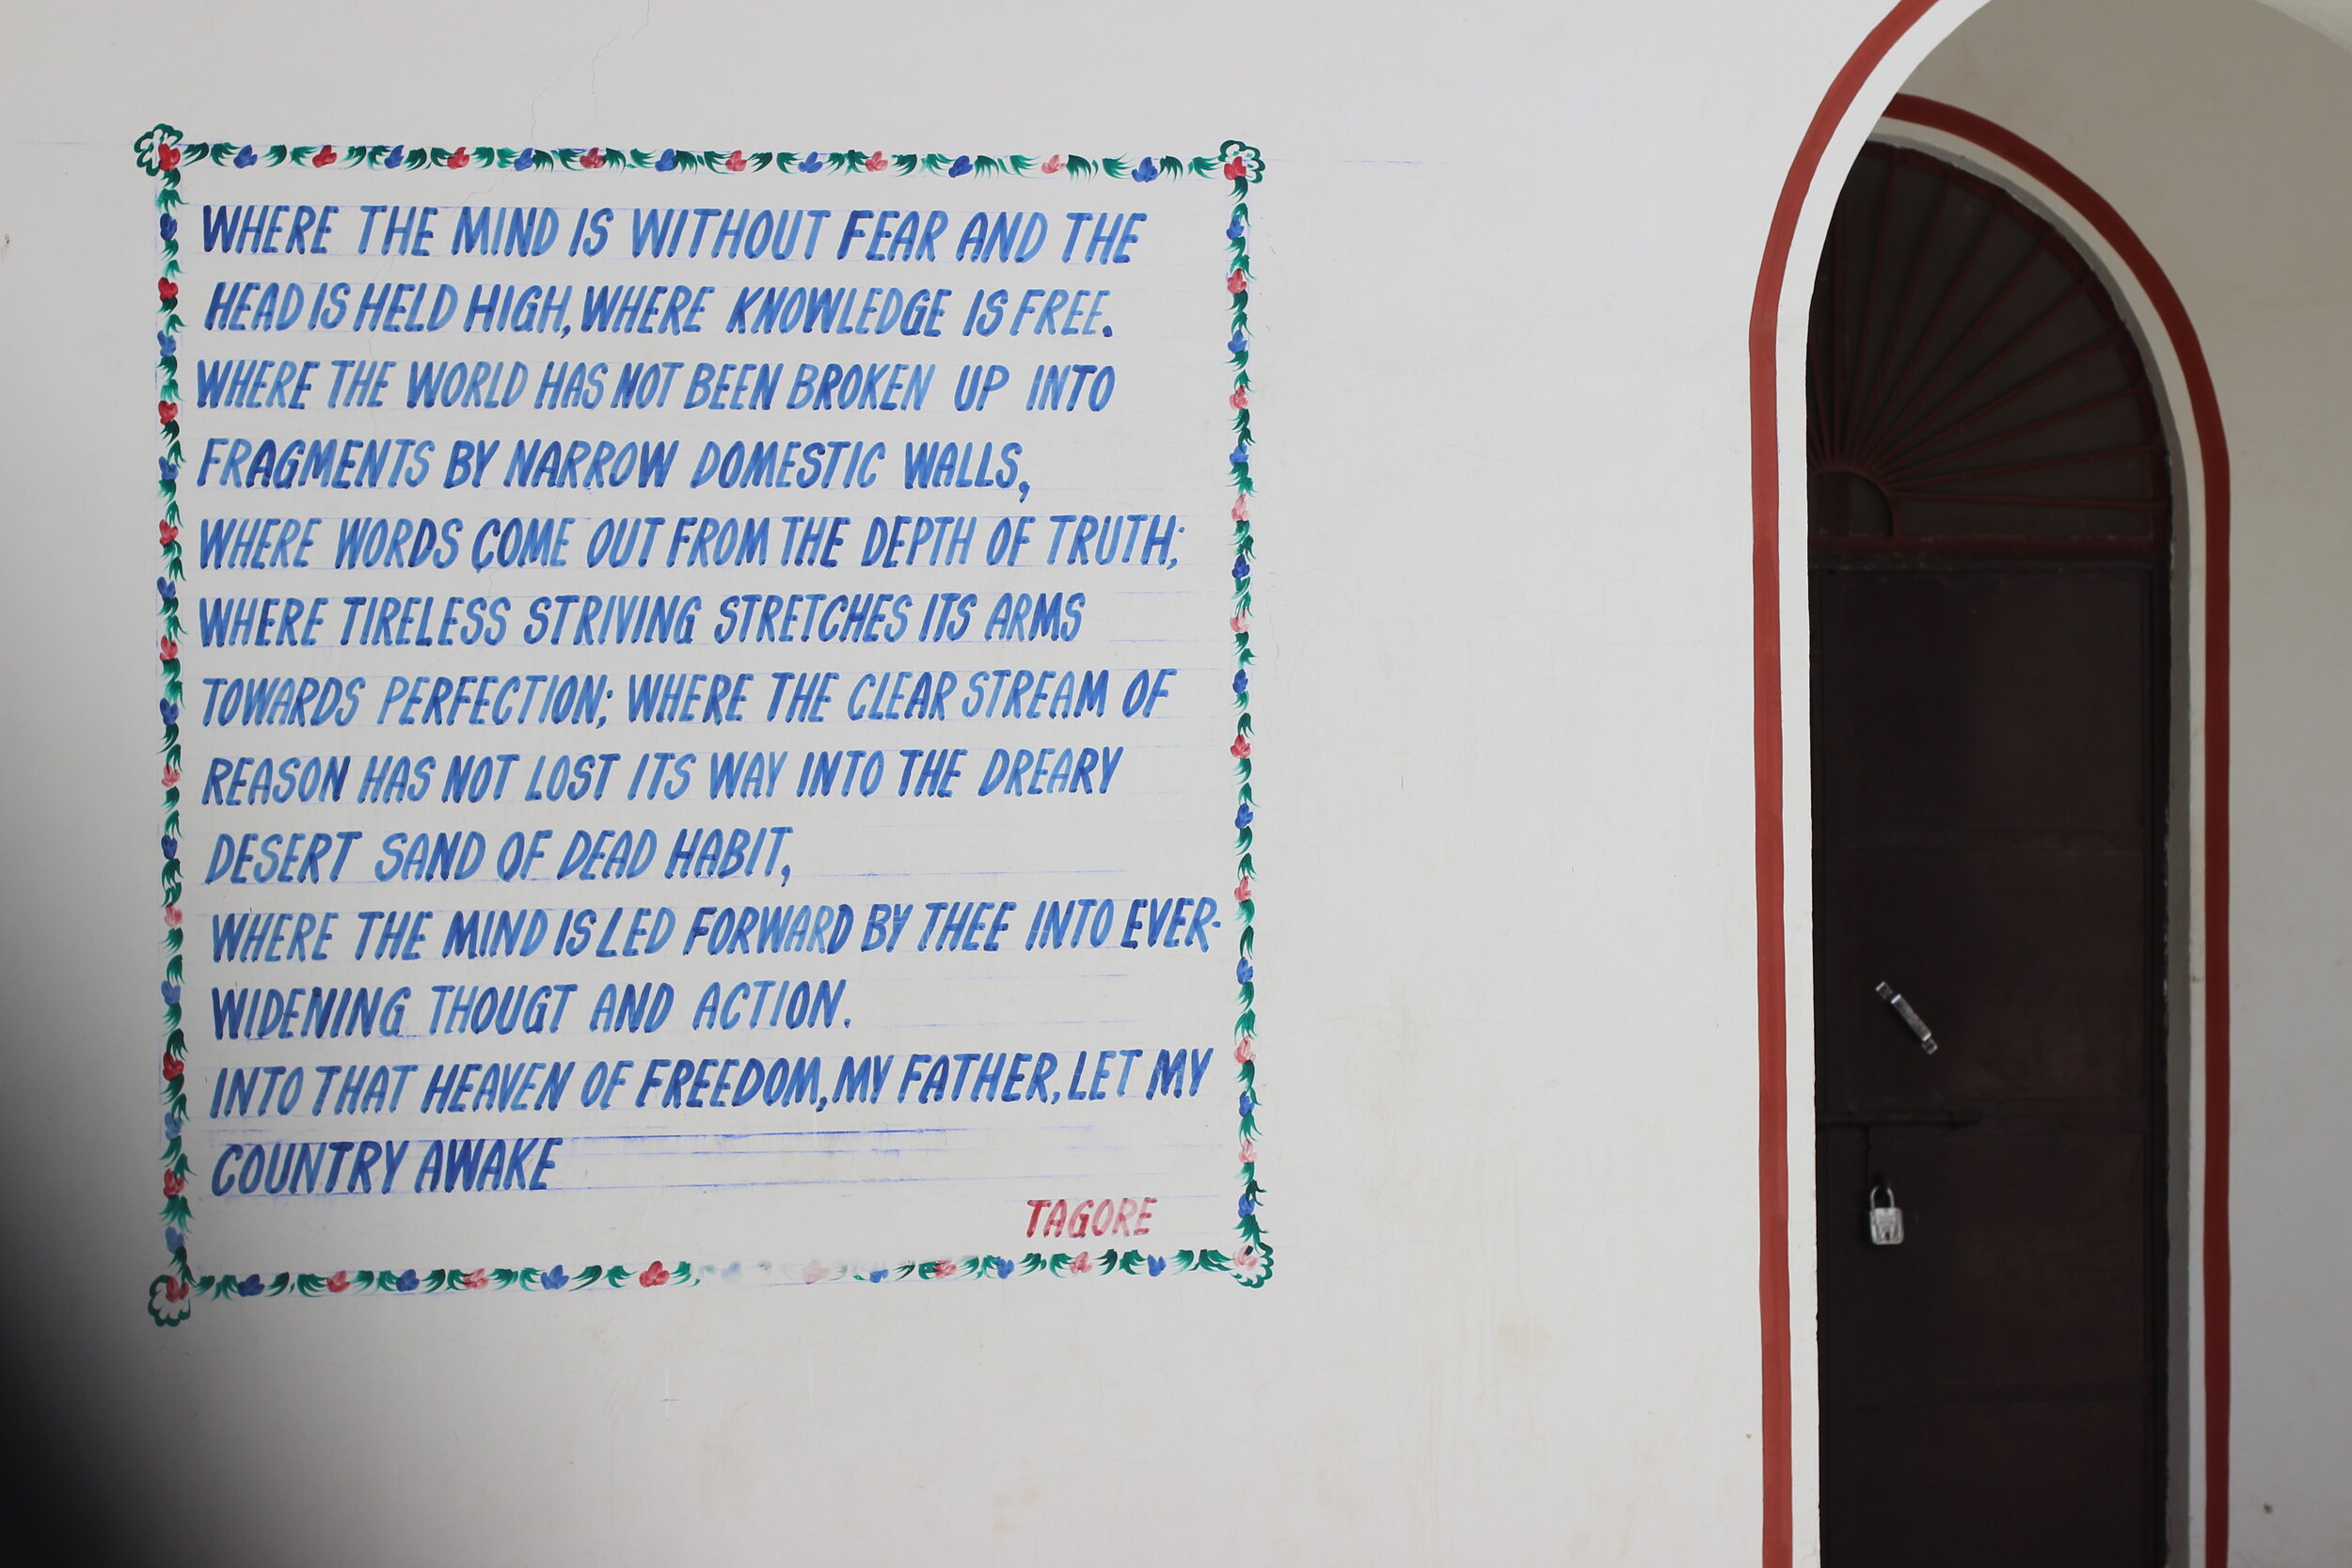 WHERE THE MIND IS WITHOUT FEAR AND THE
HEAD IS HELD HIGH, WHERE KNOWLEDGE IS FREE.
WHERE THE WORLD HAS NOT BEEN BROKEN UP INTO
FRAGMENTS BY NARROW DOMESTIC WALLS,
WHERE WORDS COME OUT FROM THE DEPTH OF TRUTH;
WHERE TIRELESS STRIVING STRETCHES ITS ARMS
TOWARDS PERFECTION; WHERE THE CLEAR STREAM OF
REASON HAS NOT LOST ITS WAY INTO THE DREARY
DESERT SAND OF DEAD HABIT,
WHERE THE MIND IS LED FORWARD BY THEE INTO EVER-
WIDENING THOUGT AND ACTION.
INTO THAT HEAVEN OF FREEDOM, MY FATHER, LET MY
COUNTRY AWAKE
TAGORE